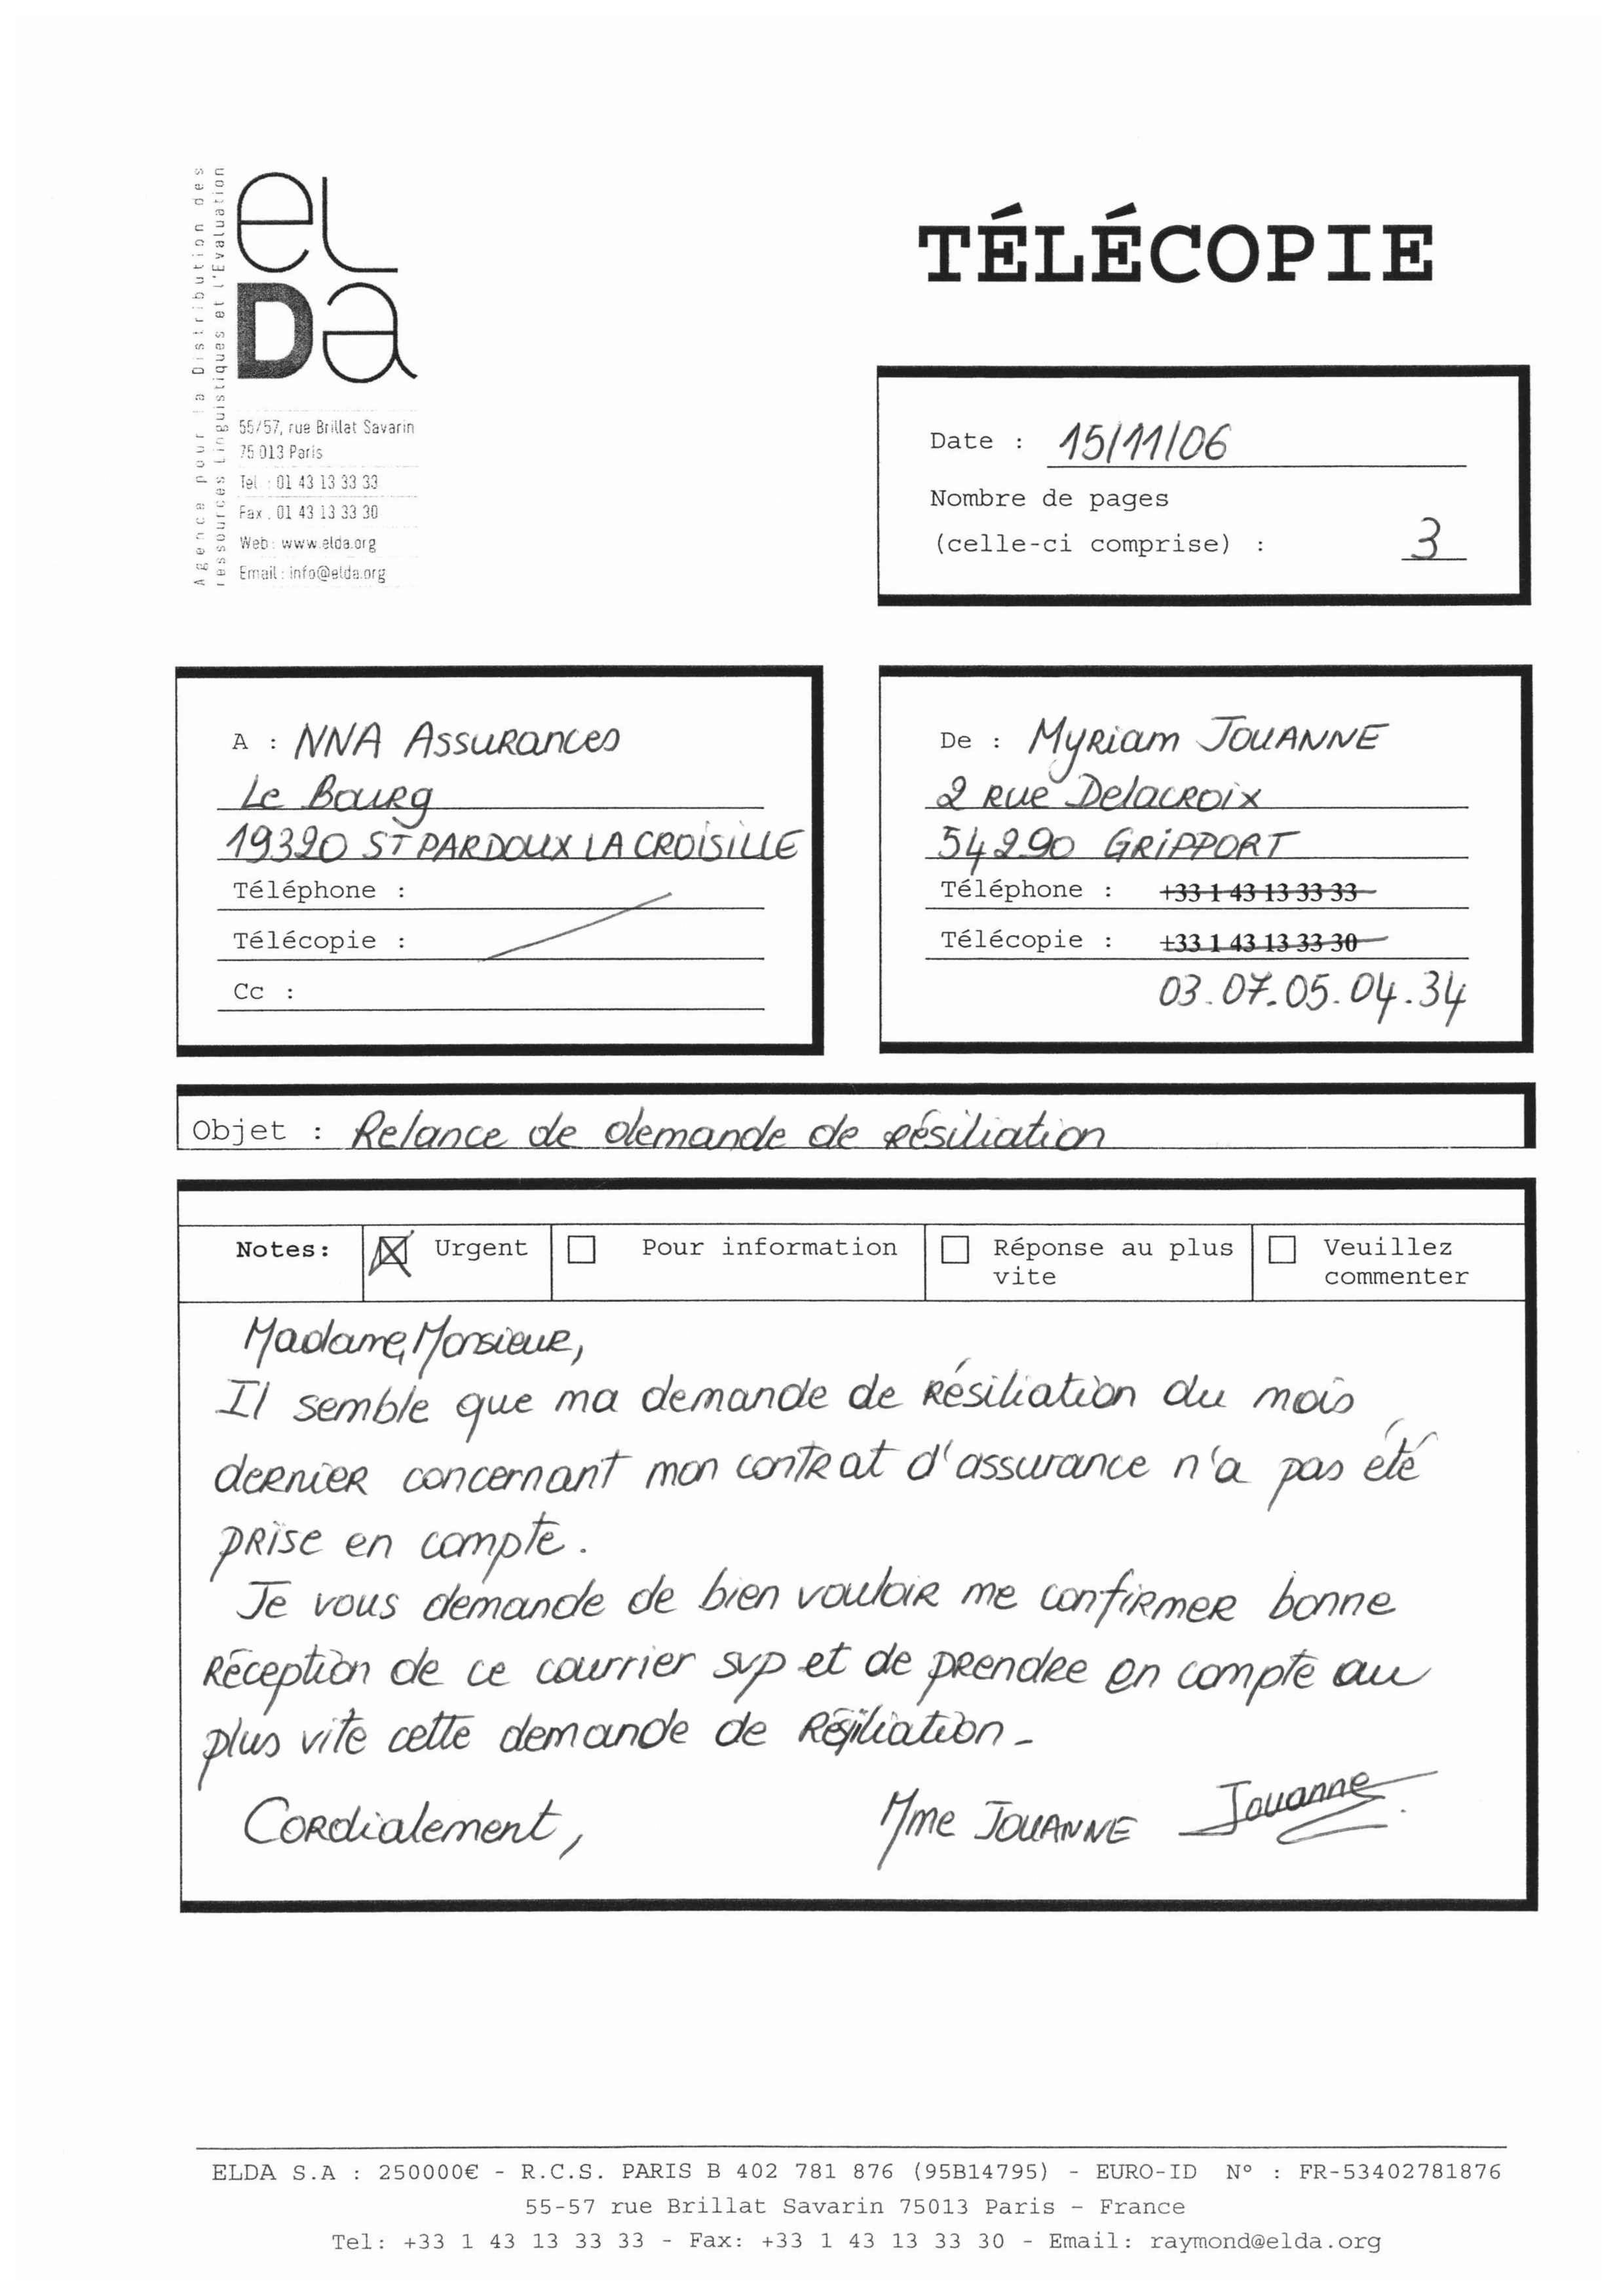 Agence pour la Distribution des
ressources Linguistiques et l'Evaluation
eLDa
55/57, rue Brillat Savarin
75 013 Paris
Tel : 01 43 13 33 33
Fax . 01 43 13 33 30
Web : www.elda.org
Email : info@elda.org
TÉLÉCOPIE
Date : 15/11/06
Nombre de pages
(celle-ci comprise) : 3
A : NNA Assurances
Le Bourg
19320 ST PARDOUX LA CROISILLE
Téléphone :
Télécopie :
Cc :
De : Myriam JOUANNE
2 rue Delacroix
54290 GRIPPORT
Téléphone : +33 1 43 13 33 33
Télécopie : +33 1 43 13 33 30
03.07.05.04.34
Objet : Relance de demande de résiliation
Notes: Urgent Pour information Réponse au plus vite Veuillez commenter
Madame, Monsieur,
Il semble que ma demande de résiliation du mois
dernier concernant mon contrat d'assurance n'a pas été
prise en compte.
Je vous demande de bien vouloir me confirmer bonne
réception de ce courrier svp et de prendre en compte au
plus vite cette demande de résiliation -
Cordialement,
Mme JOUANNE Jouanne
ELDA S.A : 250000€ - R.C.S. PARIS B 402 781 876 (95B14795) - EURO-ID N° : FR-53402781876
55-57 rue Brillat Savarin 75013 Paris - France
Tel: +33 1 43 13 33 33 - Fax: +33 1 43 13 33 30 - Email: raymond@elda.org